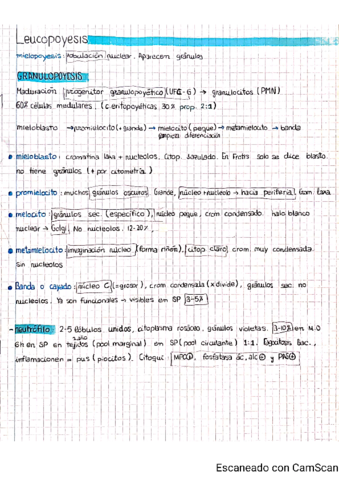 Leucopoyesis
mielopoyesis: lobulación nuclear. Aparecen gránulos
GRANULOPOYESIS
Maduración (progenitor granulopoyético (UFC-G) → granulocitos (PMN)
60% células medulares; (c.eritopoyéticas 30% prop. 2:1)
mieloblasto → promielocito (+ grande) → mielocito (peque) → metamielocito → banda
empieza diferenciación
• mieloblasto: cromatina laxa + nucleolos. Citop. azulado. En Frotis solo se dice blasto
no tiene gránulos (+ por citometría)
• promielocito: muchos gránulos oscuros. Grande, núcleo + nucleolo → hacia periferia. Crom laxa
• mielocito: gránulos sec. (específico), núcleo peque, crom condensado. halo blanco
nuclear → Golgi. No nucleolos. 12-20%.
• metamielocito: imaginación núcleo (forma riñón), citop claro, crom. muy condensada.
Sin nucleolos
• Banda o cayado: núcleo C (= grosor), crom condensada (x divide), gránulos sec. no
nucleolos. Ya son funcionales → visibles en SP 3-5%
- neutrófilo: 2-5 lóbulos unidos, citoplasma rosáceo, gránulos violetas. 3-10% en M.O
6h en SP en tejidos (pool marginal) en SP (pool circulante) 1:1. bac.,
inflamaciones = pus (piocitos). Citoquí: MPO⊕, fosfatasa ác, alc⊕ y PAS⊕
Escaneado con CamScan